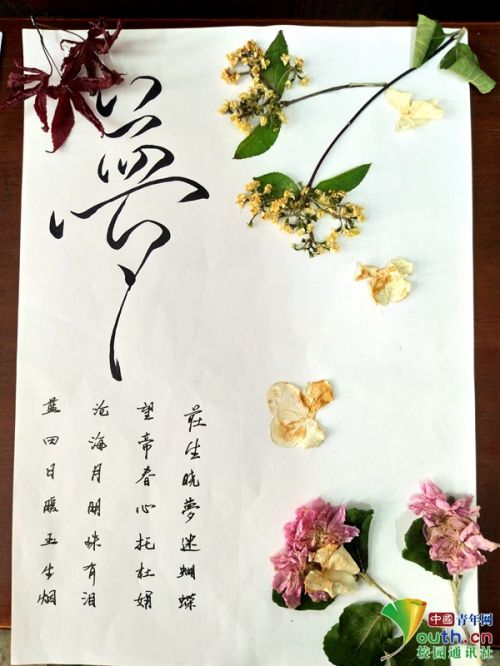 夢
莊生晓夢迷蝴蝶
望帝春心托杜娟
沧海月明珠有泪
蓝田日暖玉生烟
中國青年网
Youth.cn
校园通讯社